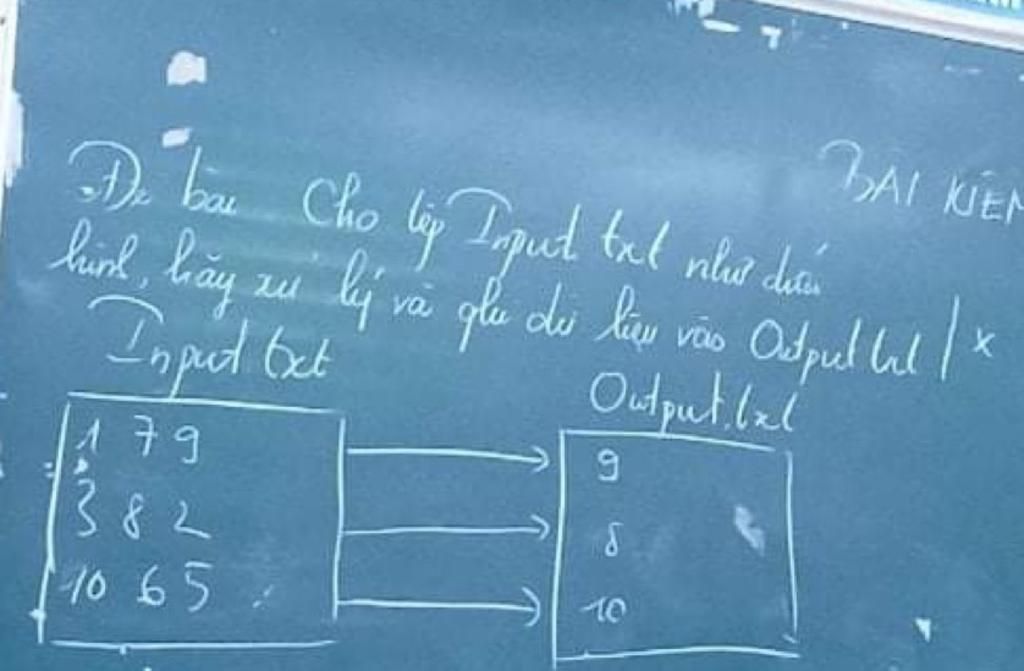 BÀI KIỂM
Đề bài Cho tệp Input txt như dưới
hình, hãy xử lý và ghi dữ liệu vào Output txt
Input txt
Output.txt
1 7 9
9
3 8 2
8
10 6 5
10